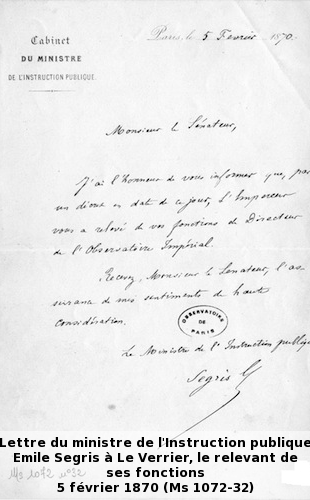 Cabinet
DU MINISTRE
DE L'INSTRUCTION PUBLIQUE.
Paris, le 5 Fevrier 1870.
Monsieur le Sénateur,
J'ai l'honneur de vous informer que, par
un décret en date de ce jour, L'Empereur
vous a relevé de vos fonctions de Directeur
de l'Observatoire Impérial.
Recevez, Monsieur le Senateur, l'as
surance de mes sentiments de haute
considération.
OBSERVATOIRE
DE
PARIS
Le Ministre de l'Instruction publique
Segris
Lettre du ministre de l'Instruction publique
Emile Segris à Le Verrier, le relevant de
ses fonctions
5 février 1870 (Ms 1072-32)
Ms 1072 n° 32